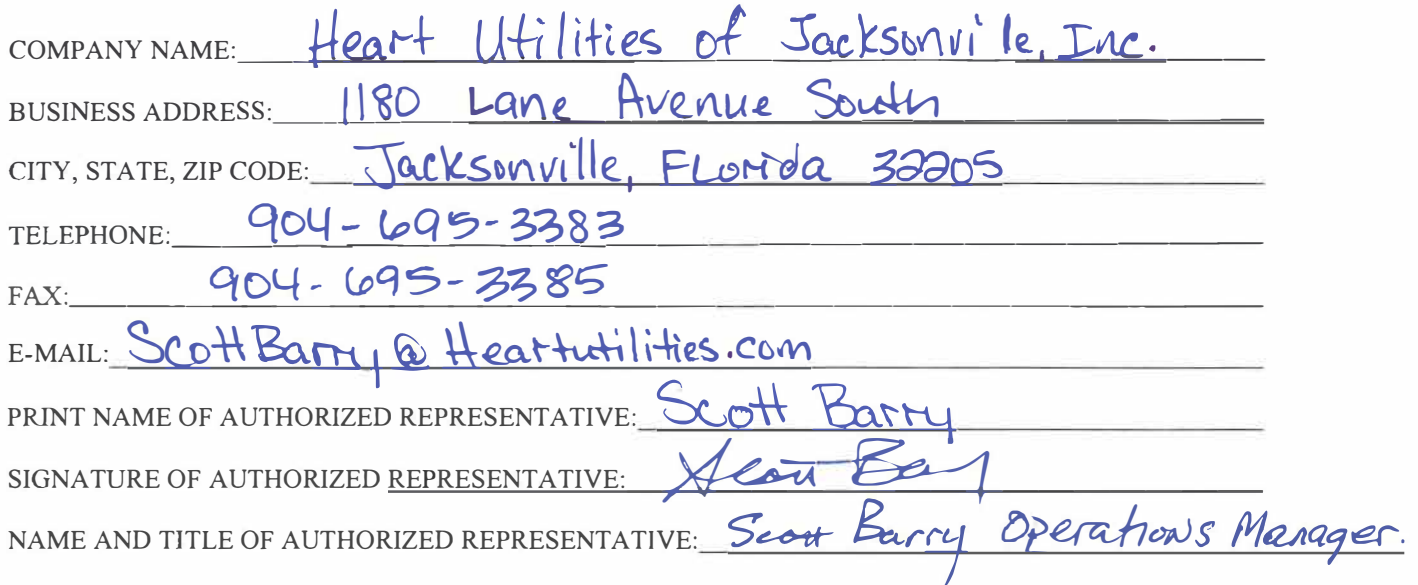 COMPANY NAME: Heart Utilities of Jacksonville, Inc.
BUSINESS ADDRESS: 1180 Lane Avenue South
CITY, STATE, ZIP CODE: Jacksonville, FLorida 32205
TELEPHONE: 904-695-3383
FAX: 904-695-3385
E-MAIL: ScottBarry@Heartutilities.com
PRINT NAME OF AUTHORIZED REPRESENTATIVE: Scott Barry
SIGNATURE OF AUTHORIZED REPRESENTATIVE: Scott Barry
NAME AND TITLE OF AUTHORIZED REPRESENTATIVE: Scott Barry Operations Manager.